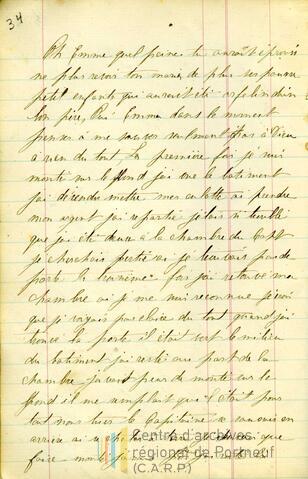 34
Oh Emma quel peine tu auroit éprouvé
ne plus revoir ton mari, de plus ses pauvre
petit enfants qui auroit été orfelin d'un
bon père, Oui Emma dans le moment
penser a me sauver seulment
a rien du tout, La première fois je suis
monté sur le fond jai vue le batiment
jai décendu mettre mes culotte ai prendre
mon argent jai repartie jetais si troublé
que jai été a la chambre du Capt
je cherchais partie ai je trouvais pas de
porte la troisième fois jai retourné ma
chambre ai je me suis reconnue je crois
que je voyais pas claire du tout quand jai
trouvé la porte il était vert le milieu
du batiment jai resté une part de la
chambre javait peur de monté sur le
fond il me semblait que s'était pour
tout nous tuer le Capitaine sa
arrière ai
faire monté
Centre d'archives
régional de Portneuf
(C.A.R.P.)